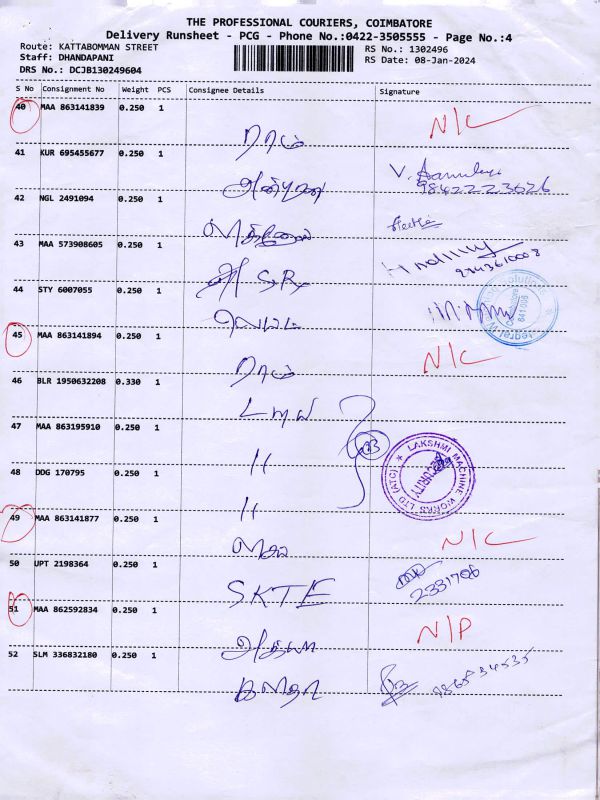 THE PROFESSIONAL COURIERS, COIMBATORE
Delivery Runsheet - PCG - Phone No.:0422-3505555 - Page No.:4
Route: KATTABOMMAN STREET RS No.: 1302496
Staff: DHANDAPANI RS Date: 08-Jan-2024
DRS No.: DCJB130249604
S No Consignment No Weight PCS Consignee Details Signature
40 MAA 863141839 0.250 1
ராம் N/C
41 KUR 695455677 0.250 1
V. 9842223626
42 NGL 2491094 0.250 1
43 MAA 573908605 0.250 1
9743610008
S.R
44 STY 6007055 0.250 1
641006
45 MAA 863141894 0.250 1
ராம் N/C
46 BLR 1950632208 0.330 1
LMW
47 MAA 863195910 0.250 1
LAKSHMI MACHINE WORKS LTD (ATC)
SECURITY
11
48 DDG 170795 0.250 1
11
49 MAA 863141877 0.250 1
N/C
50 UPT 2198364 0.250 1
2331706
SKTE
51 MAA 862592834 0.250 1
N/P
52 SLM 336832180 0.250 1
9865834535